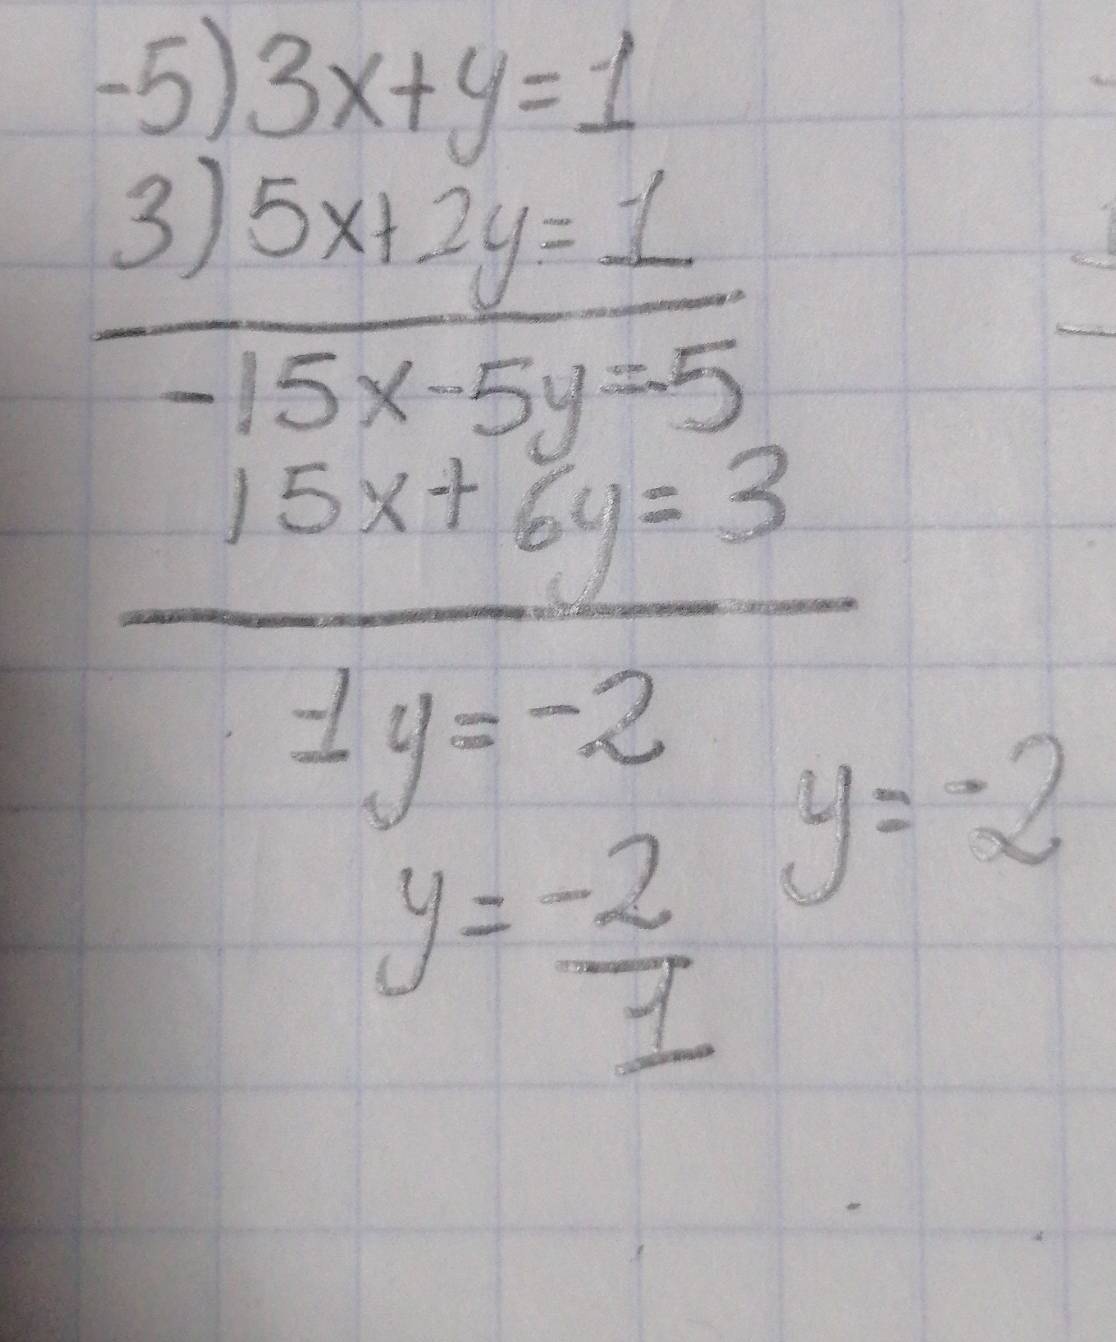 -5) 3x+y=1
3) 5x+2y=1
-15x-5y=-5
15x+6y=3
1y=-2
y=-2
y=-2/1